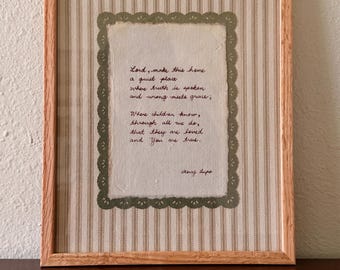 Lord, make this home
a quiet place
where truth is spoken
and wrong meets grace;
Where children know,
through all we do,
that they are loved
and You are true.